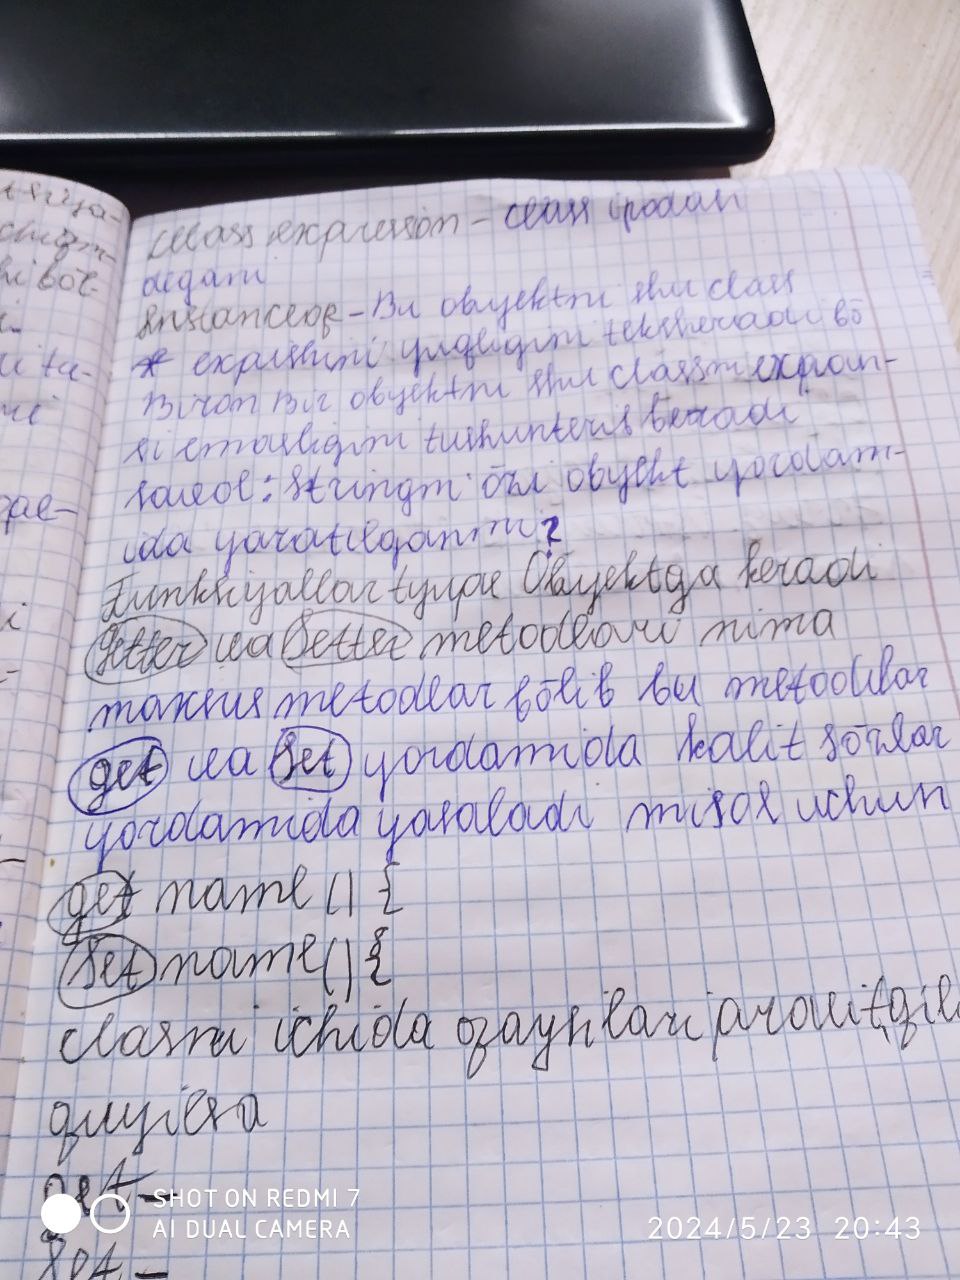 class expression - class ifodasi
degani
instanceof - Bu obyektni shu class
* expireshini yuqligini teksheradi bō
Biron Bir obyektni shu classni expoin-
si emasligini tushunteris beradi
savol: stringni ōzi obyekt yordam-
ida yaratilganmi?
Funkhiyallar type Obyektga keradi
getter va setter metodlari nima
maxsus metodlar bōlib bu metodlar
get va set yordamida kalit sōzlar
yordamida yasaladi misol uchun
get name () {
set name () {
classni ichida
quyilsa
get -
set -
chigm
bōl-
SHOT ON REDMI 7
AI DUAL CAMERA
2024/5/23 20:43